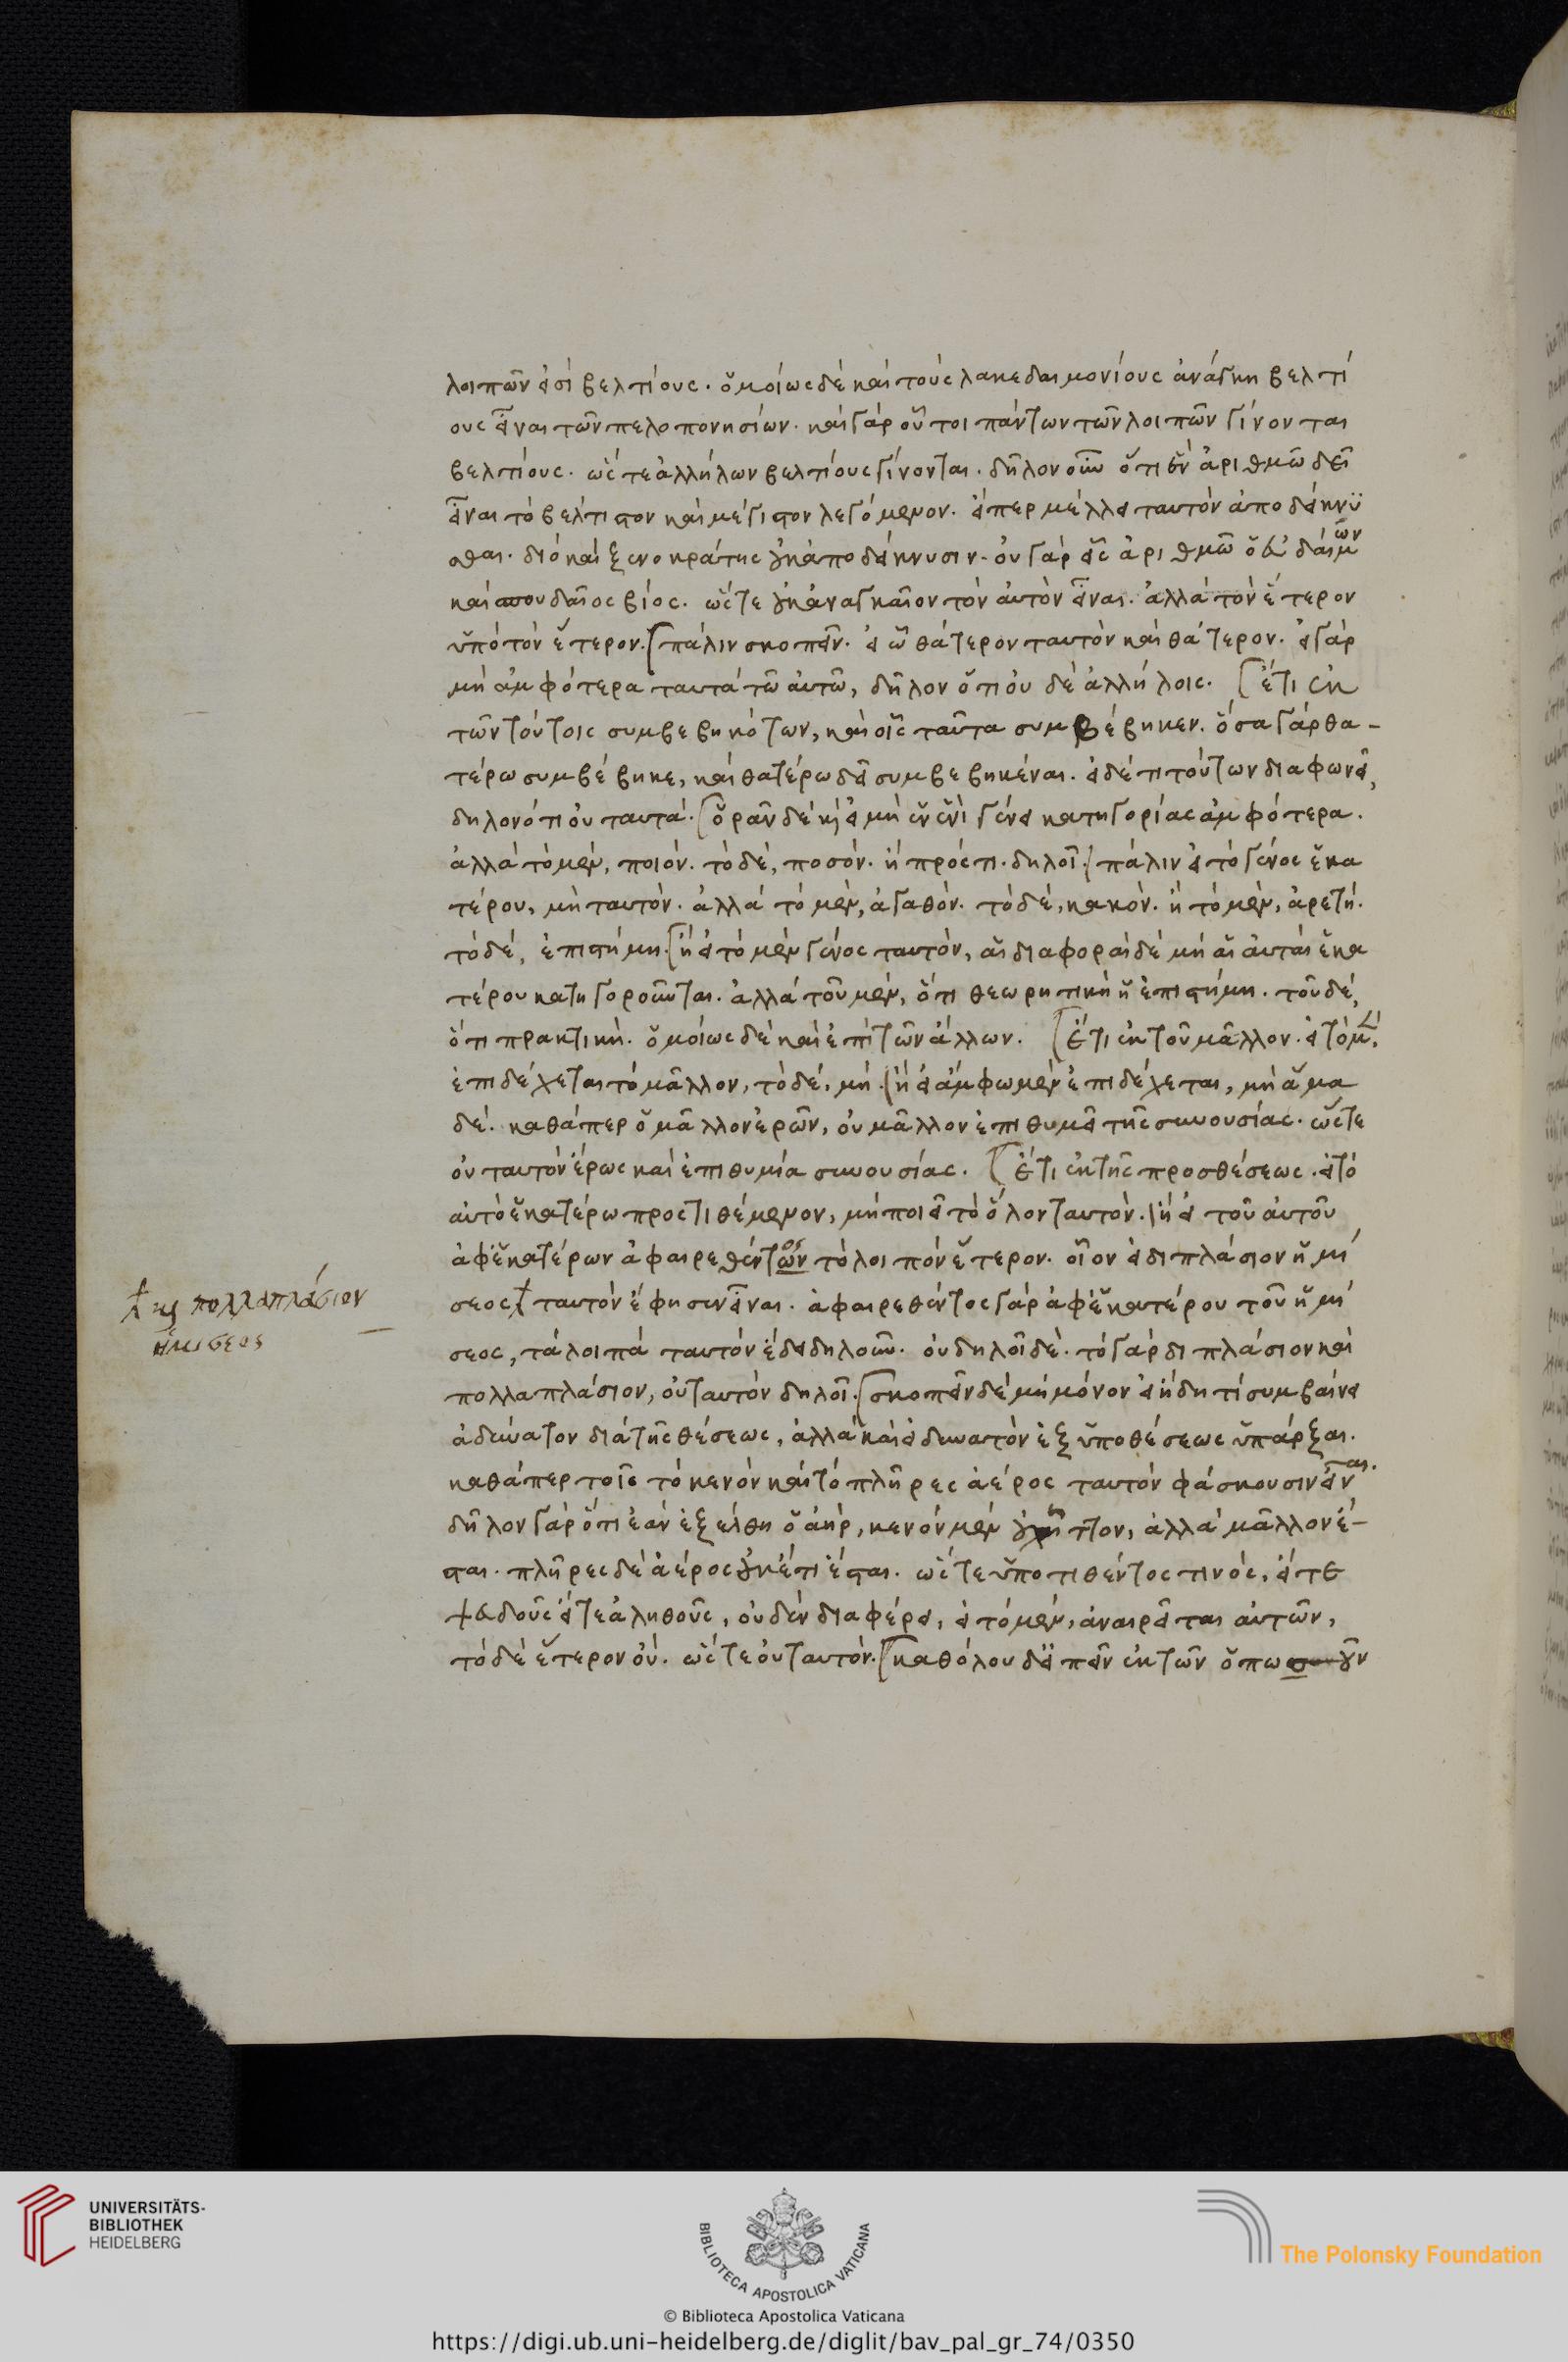 λοιπῶν εἰσὶ βελτίους. ὁμοίως δὲ καὶ τοὺς λακεδαιμονίους ἀνάγκη βελτί
ους εἶναι τῶν πελοπονησίων. καὶ γὰρ οὗτοι πάντων τῶν λοιπῶν γίνονται
βελτίους. ὥστε ἀλλήλων βελτίους γίνονται. δῆλον οὖν ὅτι ἓν ἀριθμῶ δεῖ
εἶναι τὸ βέλτιστον καὶ μέγιστον λεγόμενον. εἴπερ μέλλει ταυτὸν ἀποδείκνυ
σθαι. διὸ καὶ ξενοκράτης οὐκ ἀποδείκνυσιν. οὐ γὰρ εἷς ἀριθμῶ ὁ εὐδαιμων
καὶ σπουδαῖος βίος. ὥστε οὐκ ἀναγκαῖον τὸν αὐτὸν εἶναι. ἀλλὰ τὸν ἕτερον
ὑπὸ τὸν ἕτερον. πάλιν σκοπεῖν. εἰ ὧ θάτερον ταυτὸν καὶ θάτερον. εἰ γὰρ
μὴ ἀμφότερα ταυτὰ τῶ αὐτῶ, δῆλον ὅτι οὐδὲ ἀλλήλοις. ἔτι ἐκ
τῶν τούτοις συμβεβηκότων, καὶ οἷς ταῦτα συμβέβηκεν. ὅσα γὰρ θα-
τέρω συμβέβηκε, καὶ θατέρω δεῖ συμβεβηκέναι. εἰ δέ τι τούτων διαφωνεῖ,
δηλονότι οὐ ταυτά. ὁρᾶν δὲ καὶ εἰ μὴ ἐν ἑνὶ γένει κατηγορίας ἀμφότερα.
ἀλλὰ τὸ μὲν, ποιόν. τὸ δὲ, ποσόν. ἢ πρός τι δηλοῖ. πάλιν εἰ τὸ γένος ἑκα
τέρου, μὴ ταυτόν. ἀλλὰ τὸ μὲν, ἀγαθόν. τὸ δὲ, κακόν. ἢ τὸ μὲν, ἀρετή.
τὸ δὲ, ἐπιστήμη. ἢ εἰ τὸ μὲν γένος ταυτὸν, αἱ διαφοραὶ δὲ μὴ αἱ αὐταὶ ἑκα
τέρου κατηγοροῦνται. ἀλλὰ τοῦ μὲν, ὅτι θεωρητικὴ ἡ ἐπιστήμη. τοῦ δὲ,
ὅτι πρακτική. ὁμοίως δὲ καὶ ἐπὶ τῶν ἄλλων. ἔτι ἐκ τοῦ μᾶλλον. εἰ τὸ μὲν,
ἐπιδέχεται τὸ μᾶλλον, τὸ δὲ, μή. ἢ εἰ ἄμφω μὲν ἐπιδέχεται, μὴ ἅμα
δέ. καθάπερ ὁ μᾶλλον ἐρῶν, οὐ μᾶλλον ἐπιθυμεῖ τῆς συνουσίας. ὥστε
οὐ ταυτὸν ἔρως καὶ ἐπιθυμία συνουσίας. ἔτι ἐκ τῆς προσθέσεως. εἰ τὸ
αὐτὸ ἑκατέρω προστιθέμενον, μὴ ποιεῖ τὸ ὅλον ταυτόν. ἢ εἰ τοῦ αὐτοῦ
ἀφ' ἑκατέρων ἀφαιρεθέντων ος τὸ λοιπὸν ἕτερον. οἷον εἰ διπλάσιον ἡμί
σεος ταυτὸν ἔφησεν εἶναι. ἀφαιρεθέντος γὰρ ἀφ' ἑκατέρου τοῦ ἡμί
σεος, τὰ λοιπὰ ταυτὸν ἔδει δηλοῦν. οὐ δηλοῖ δέ. τὸ γὰρ διπλάσιον καὶ
πολλαπλάσιον, οὐ ταυτὸν δηλοῖ. σκοπεῖν δὲ μὴ μόνον εἰ ἤδη τί συμβαίνει
ἀδύνατον διὰ τῆς θέσεως, ἀλλὰ καὶ εἰ δυνατὸν ἐξ ὑποθέσεως ὑπάρξαι.
καθάπερ τοῖς τὸ κενὸν καὶ τὸ πλῆρες ἀέρος ταυτὸν φάσκουσιν εἶναι.
δῆλον γὰρ ὅτι ἐὰν ἐξέλθη ὁ ἀὴρ, κενὸν μὲν οὐχ ἧττον, ἀλλὰ μᾶλλον ἔ-
σται. πλῆρες δὲ ἀέρος οὐκέτι ἔσται. ὥστε ὑποτιθέντος τινὸς, εἴτε
ψευδοῦς εἴτε ἀληθοῦς, οὐδὲν διαφέρει, εἰ τὸ μὲν, ἀναιρεῖται αὐτῶν,
τὸ δὲ ἕτερον οὔ. ὥστε οὐ ταυτόν. καθόλου δ' εἰπεῖν ἐκ τῶν ὁπωσοῦν
καὶ πολλαπλάσιον
ἡμίσεος
UNIVERSITÄTS-
BIBLIOTHEK
HEIDELBERG
BIBLIOTECA APOSTOLICA VATICANA
The Polonsky Foundation
© Biblioteca Apostolica Vaticana
https://digi.ub.uni-heidelberg.de/diglit/bav_pal_gr_74/0350